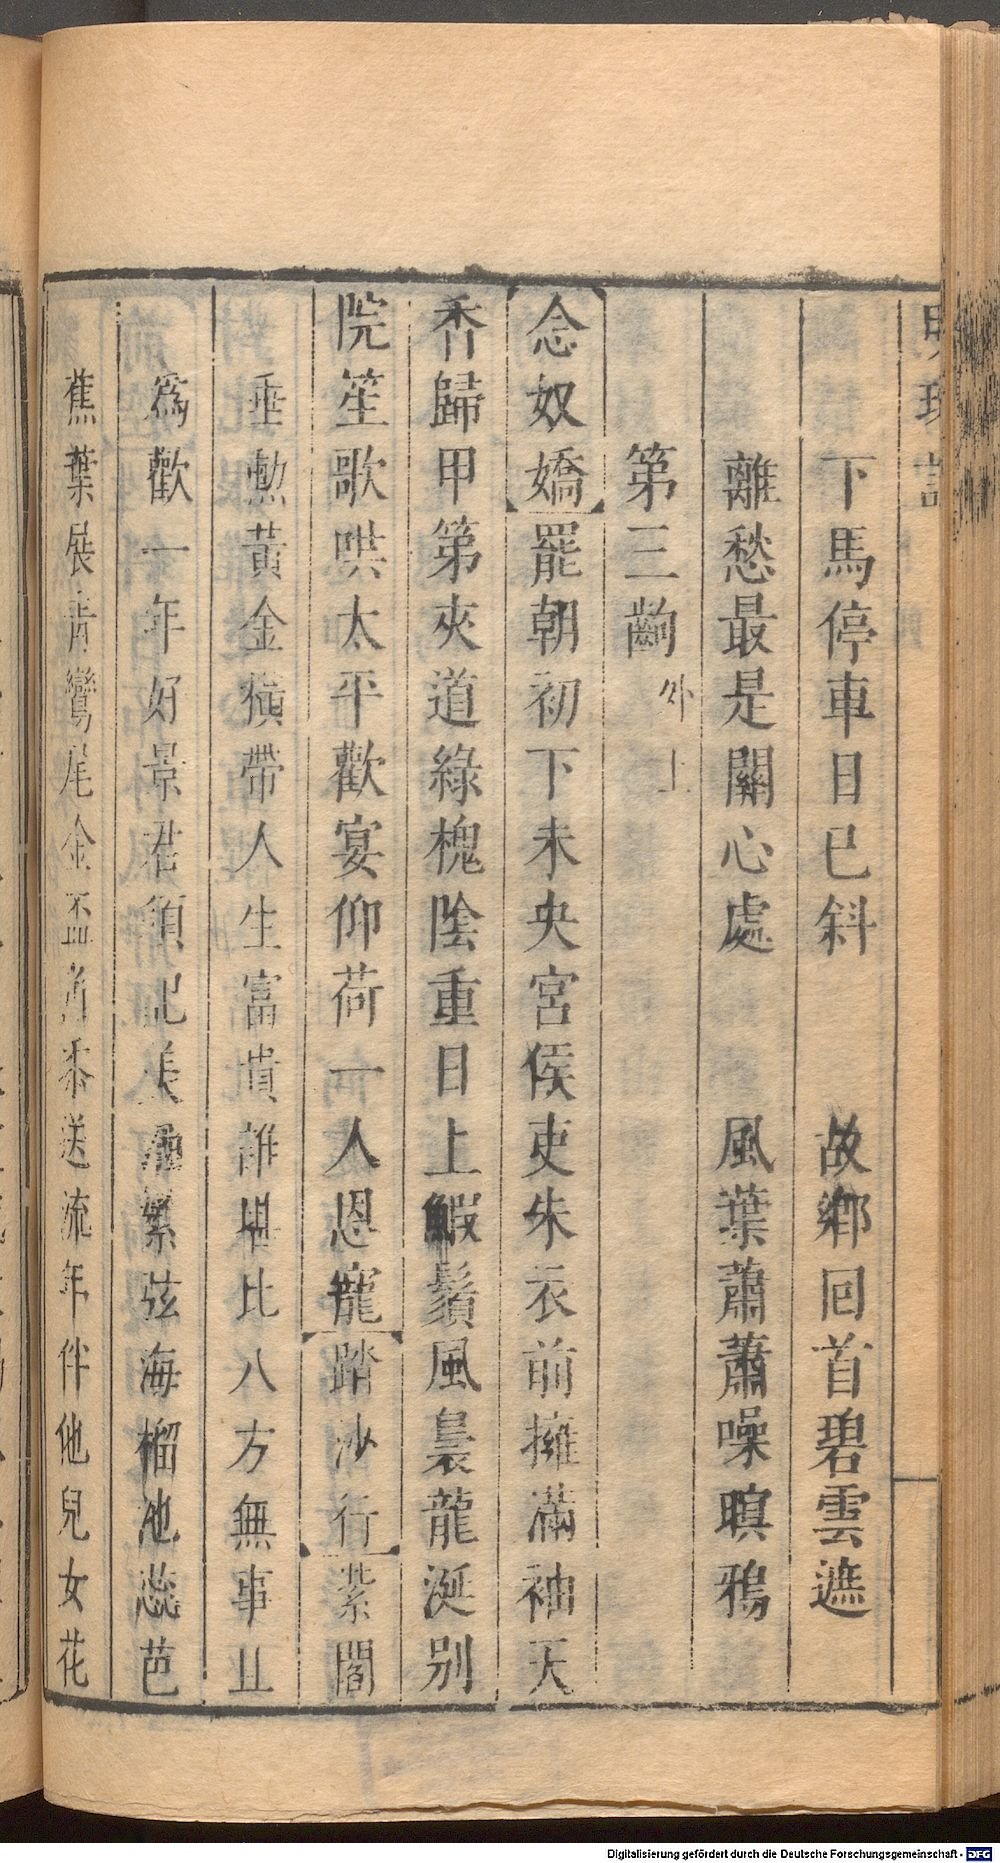 明珠記
下馬停車日已斜　故鄉回首碧雲遮
離愁最是關心處　風葉蕭蕭噪暝鴉
第三齣外上
念奴嬌罷朝初下未央宮侯吏朱衣前擁滿袖天
香歸甲第夾道綠槐陰重日上蝦鬚風裊龍涎別
院笙歌哄太平歡宴仰荷一人恩寵踏沙行紫閣
垂勲黃金橫帶人生富貴誰堪比八方無事且
爲歡一年好景君須記 繁弦海榴池蕊芭
蕉葉展青鸞尾金盃 黍送流年伴他兒女花
Digitalisierung gefördert durch die Deutsche Forschungsgemeinschaft - DFG